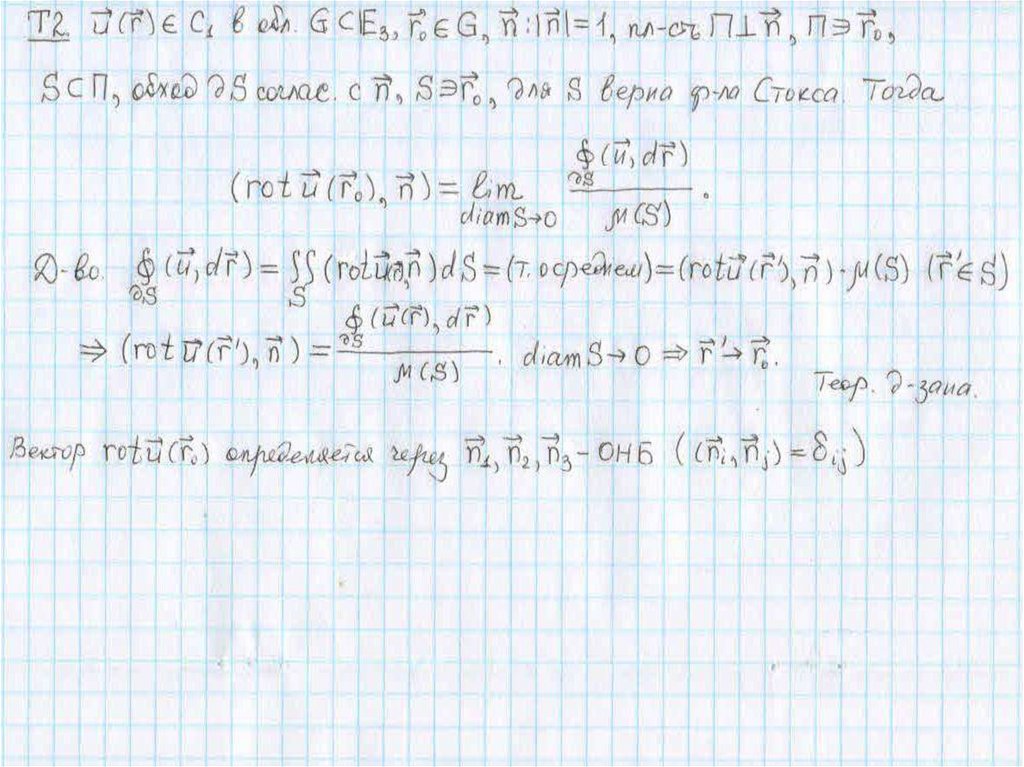 Т2. u⃗(r⃗) ∈ C₁ в обл. G ⊂ E₃, r⃗₀ ∈ G, n⃗ : |n⃗| = 1, пл-сть П ⊥ n⃗, П ∋ r⃗₀,
S ⊂ П, обход ∂S соглас. с n⃗, S ∋ r⃗₀, для S верна ф-ла Стокса. Тогда
(rot u⃗(r⃗₀), n⃗) = lim_{diam S→0} ∮_{∂S} (u⃗, dr⃗) / μ(S).
Д-во. ∮_{∂S} (u⃗, dr⃗) = ∬_S (rot u⃗, n⃗) dS = (т. о среднем) = (rot u⃗(r⃗'), n⃗) · μ(S) (r⃗' ∈ S)
⇒ (rot u⃗(r⃗'), n⃗) = ∮_{∂S} (u⃗(r⃗), dr⃗) / μ(S). diam S → 0 ⇒ r⃗' → r⃗₀.
Теор. д-зана.
Вектор rot u⃗(r⃗₀) определяется через n⃗₁, n⃗₂, n⃗₃ – ОНБ ((n⃗ᵢ, n⃗ⱼ) = δᵢⱼ)